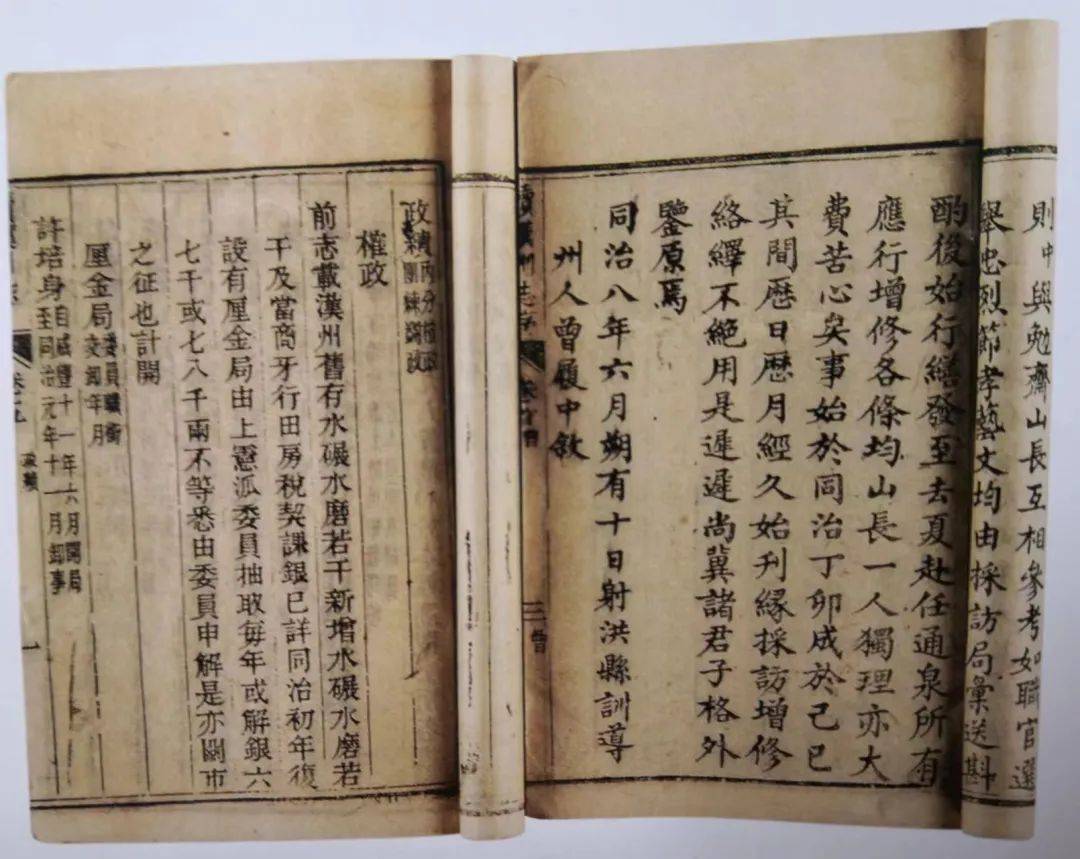 則中與勉齋山長互相參考如職官選
舉忠烈節孝藝文均由採訪局彙送斟
酌後始行繕發至去夏赴任通泉所有
應行增修各條均山長一人獨理亦大
費苦心矣事始於同治丁卯成於己巳
其間歷日歷月經久始刊緣採訪增修
絡繹不絕用是遲遲尚冀諸君子格外
鑒原焉
同治八年六月朔有十日射洪縣訓導
州人曾履中敘
續漢州志序
卷首
三
曾
政績
內分榷政
團練
榷政
前志載漢州舊有水碾水磨若干新增水碾水磨若
干及當商牙行田房稅契課銀已詳同治初年復
設有厘金局由上憲派委員抽取每年或解銀六
七千或七八千兩不等悉由委員申解是亦關市
之征也計開
厘金局
委員職銜
交卸年月
許培身
自咸豐十一年六月開局
至同治元年十一月卸事
一